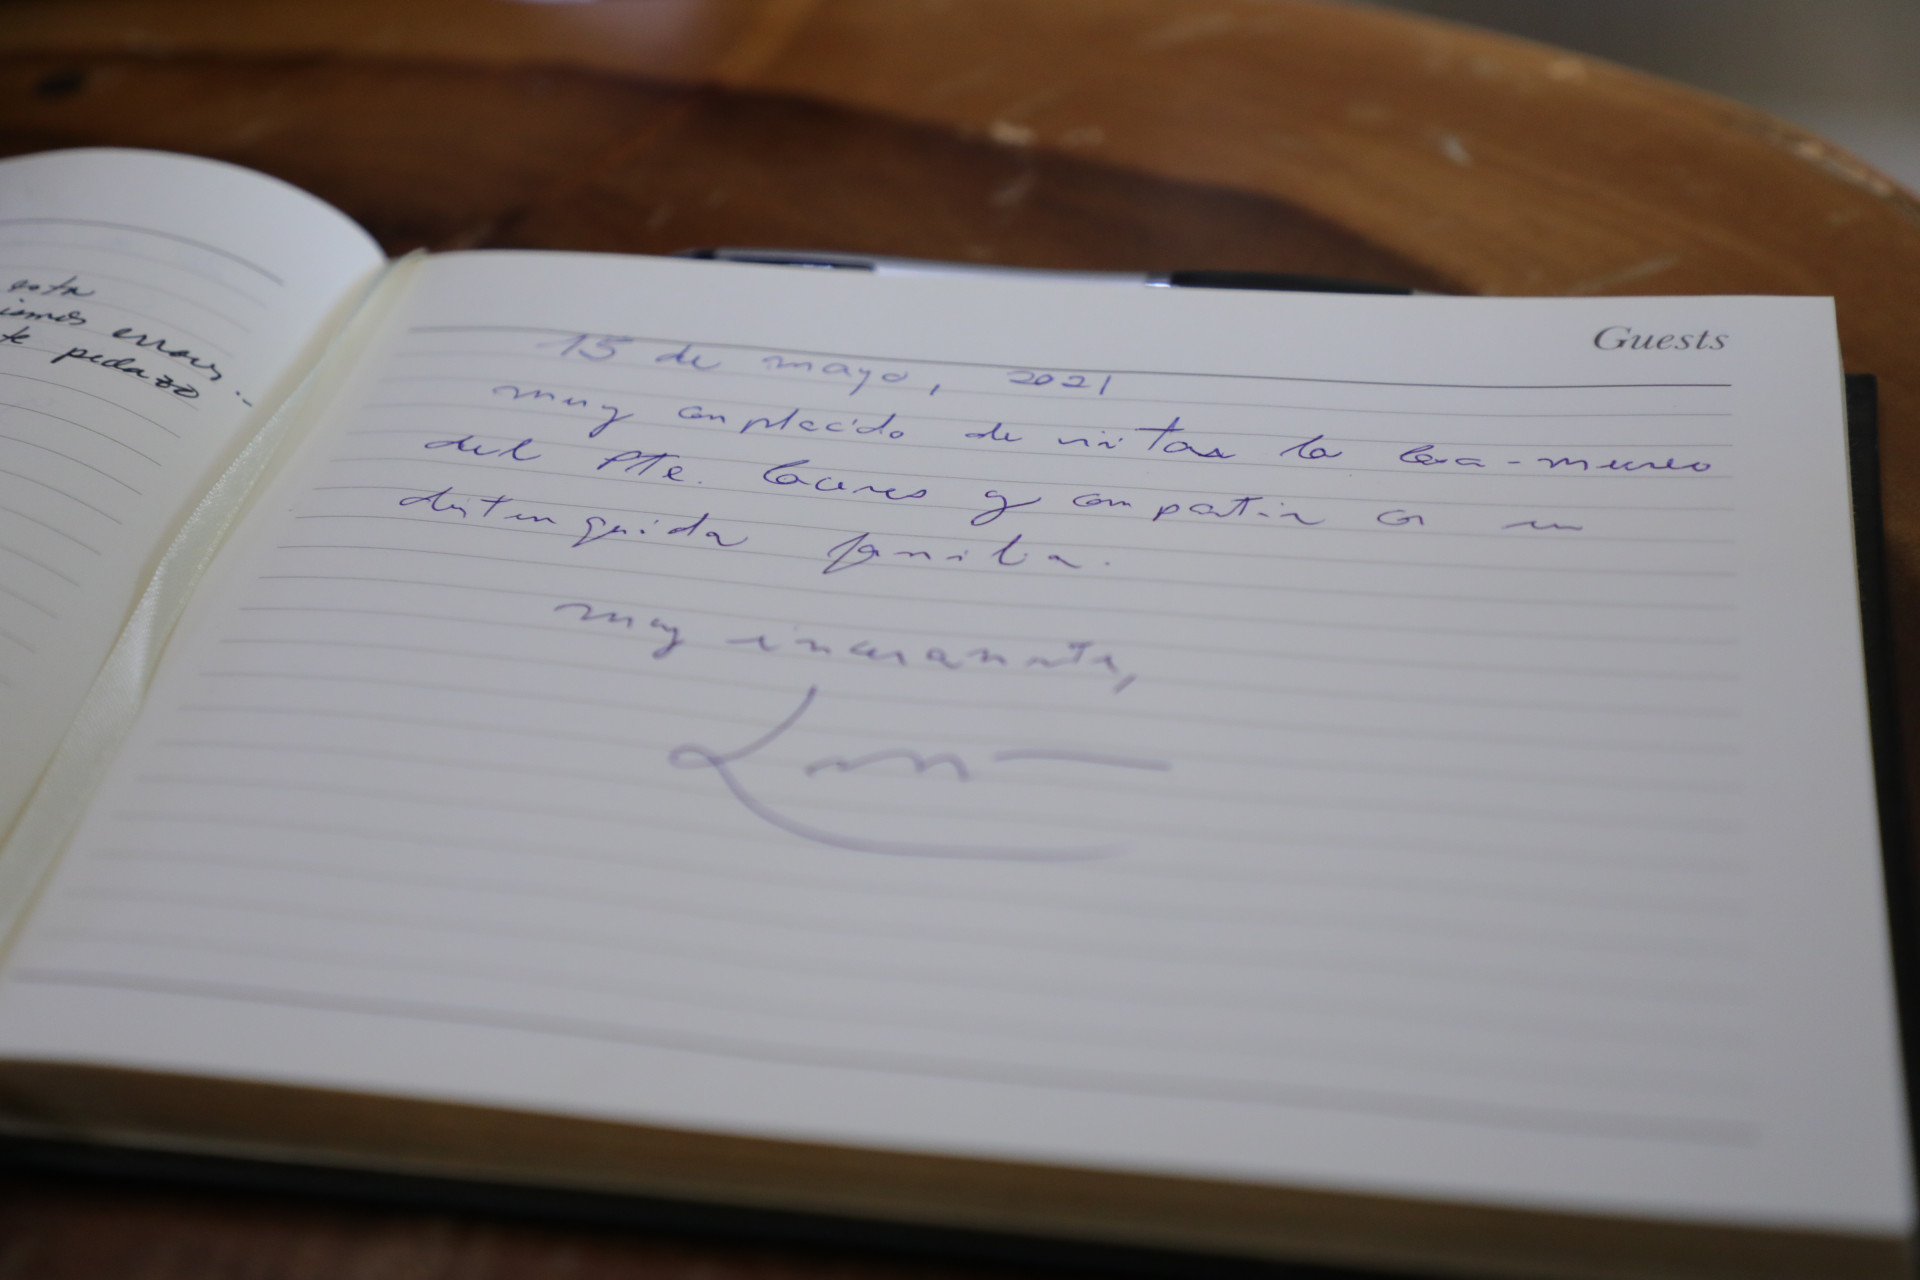 esta
errores...
te pedazo
Guests
15 de mayo, 2021
muy complacido de visitar la Casa-museo
del Pte. Cáceres y compartir con su
distinguida familia.
muy sinceramente,